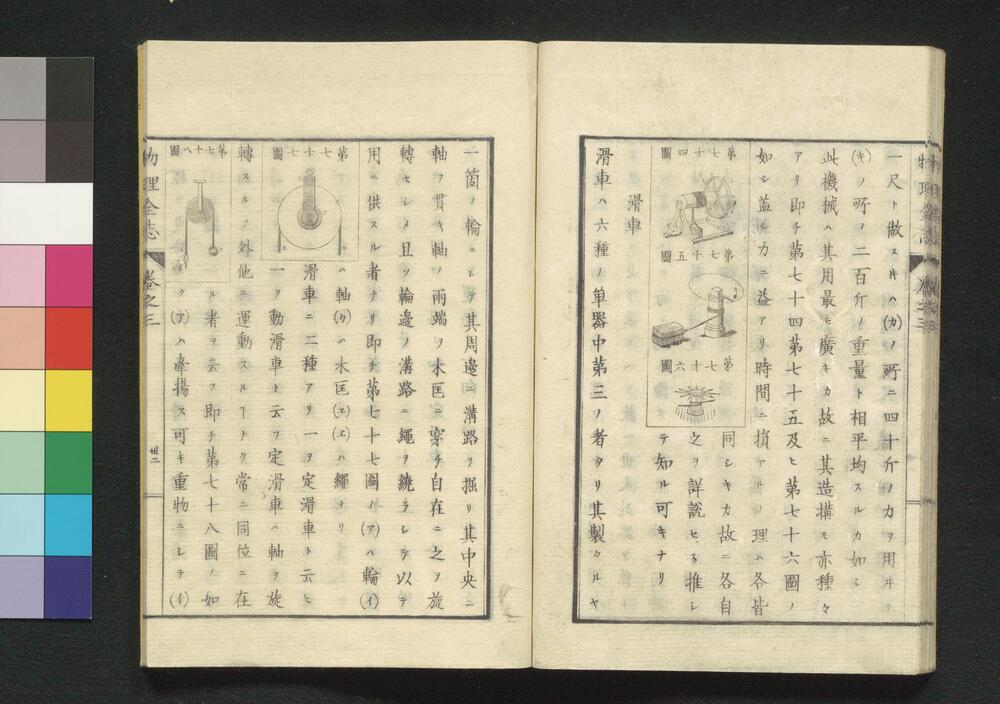 一尺ト做ス𪜈ハ(カ)ノ所ニ四十斤ノ力ヲ用ヰテ
(キ)ノ所ノ二百斤ノ重量ト相平均スルカ如シ
此機械ハ其用最モ廣キカ故ニ其造搆モ亦種々
アリ即チ第七十四第七十五及ヒ第七十六圖ノ
如シ盖シ力ニ益アリ時間ニ損アルノ理ハ各皆
第七十四圖
第七十五圖
第七十六圖
同シキカ故ニ各自
之ヲ詳說セス推シ
テ知ル可キナリ
滑車
滑車ハ六種ノ單器中第三ノ者タリ其製タルヤ
一箇ノ輪ニシテ其周邊ニ溝路ヲ掘リ其中央ニ
軸ヲ貫キ軸ノ兩端ヲ木匡ニ穿チ自在ニ之ヲ旋
轉セシメ且ツ輪邊ノ溝路ニ繩ヲ繞ラシテ以テ
用ニ供スル者ナリ即チ第七十七圖ノ(ア)ハ輪(イ)
第七十七圖
ハ軸(ウ)ハ木匡(エ)(エ)ハ繩ナリ
滑車ニ二種アリ一ヲ定滑車ト云ヒ
一ヲ動滑車ト云フ定滑車ハ軸ヲ旋
轉スルノ外他ニ運動スルヿナク常ニ同位ニ在
第七十八圖
ル者ヲ云フ即チ第七十八圖ノ如
ク(ア)ハ牽揚ス可キ重物ニシテ(イ)
物理全志 卷之三